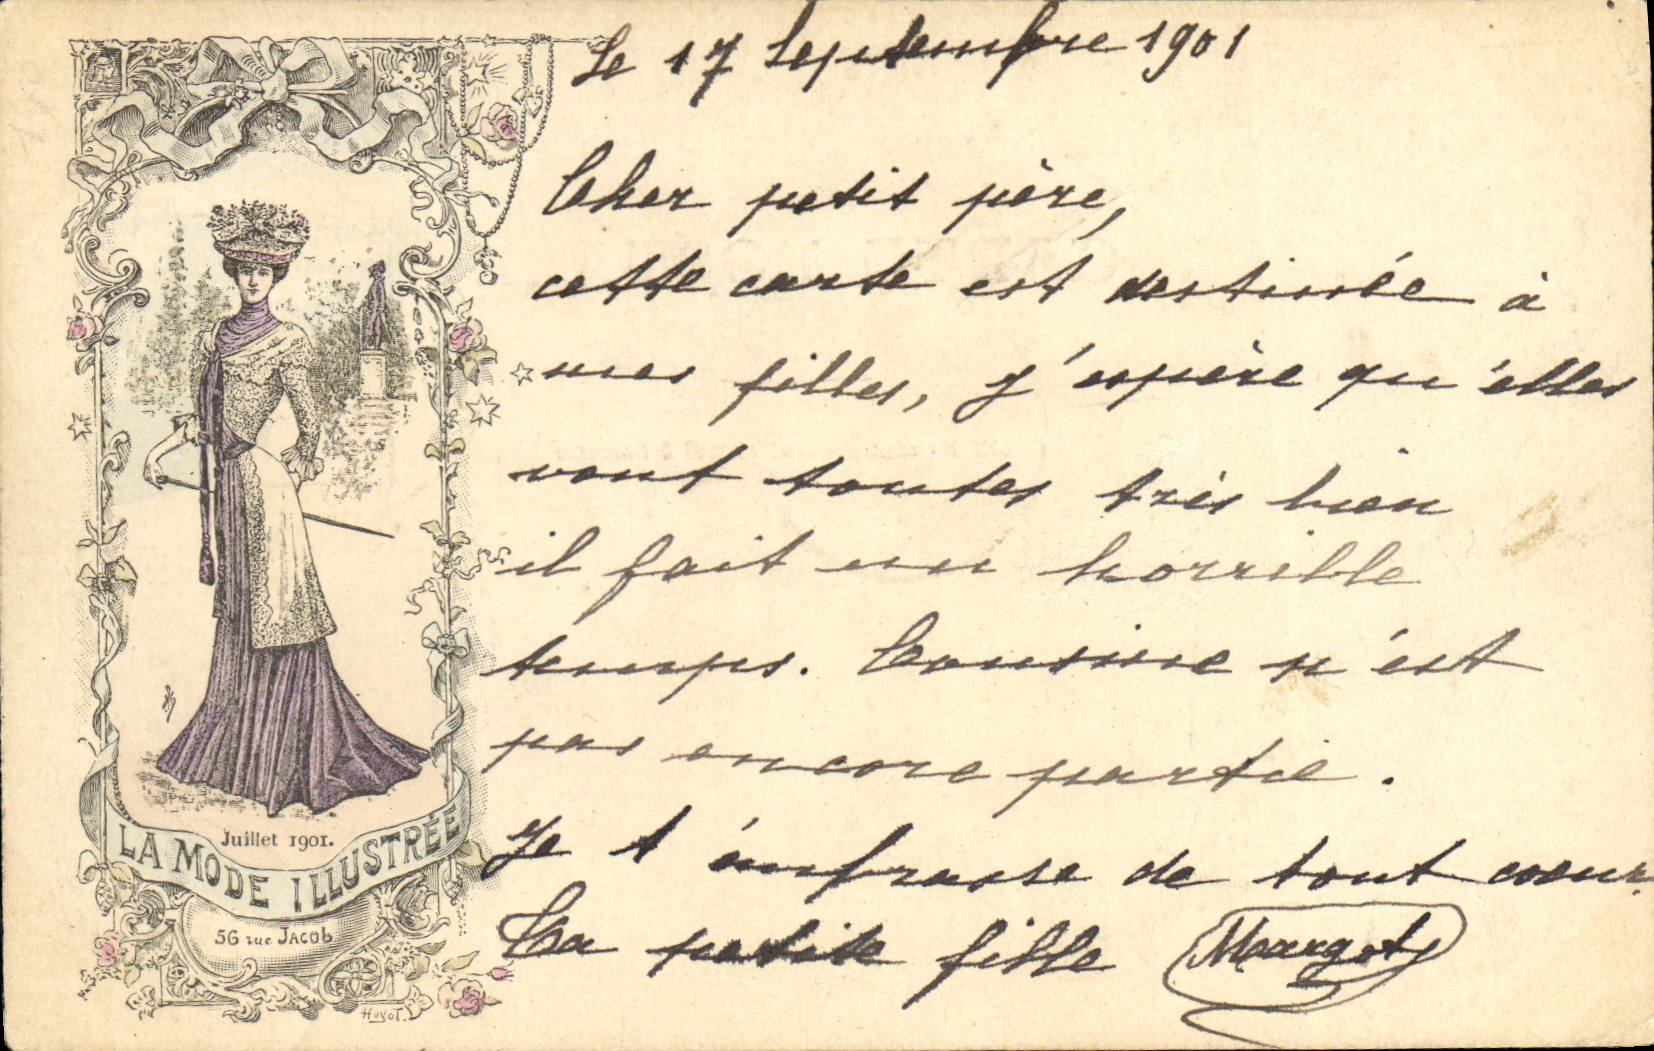 Le 17 Septembre 1901
Cher petit père,
cette carte est destinée à
mes filles, j'espère qu'elles
vont toutes très bien
il fait un horrible
temps. Cousine n'est
pas encore partie.
Je t'embrasse de tout coeur.
Ta petite fille Margot
Juillet 1901.
LA MODE ILLUSTRÉE
56 rue JACOb
HuyoT.